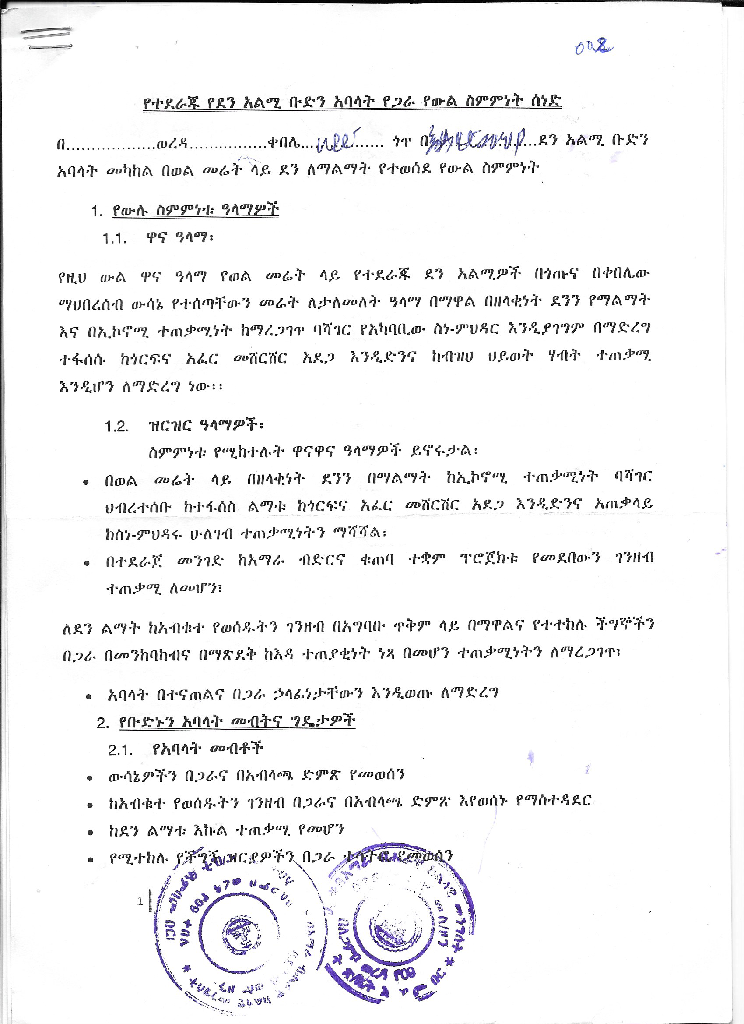 002
የተደራጁ የደን አልሚ ቡድን አባላት የጋራ የውል ስምምነት ሰነድ
በ..................ወረዳ................ቀበሌ........... ጎጥ በ...ደን አልሚ ቡድን
አባላት መካከል በወል መሬት ላይ ደን ለማልማት የተወሰደ የውል ስምምነት
1. የውሉ ስምምነቱ ዓላማዎች
1.1. ዋና ዓላማ፡
የዚህ ውል ዋና ዓላማ የወል መሬት ላይ የተደራጁ ደን አልሚዎች በጎጡና በቀበሌው
ማህበረሰብ ውሳኔ የተሰጣቸውን መሬት ለታለመለት ዓላማ በማዋል በዘላቂነት ደንን የማልማት
እና በኢኮኖሚ ተጠቃሚነት ከማረጋገጥ ባሻገር የአካባቢው ስነ-ምህዳር እንዲያገግም በማድረግ
ተፋሰሱ ከጎርፍና አፈር መሸርሸር አደጋ እንዲድንና ከብዝሀ ህይወት ሃብት ተጠቃሚ
እንዲሆን ለማድረግ ነው፡፡
1.2. ዝርዝር ዓላማዎች፡
ስምምነቱ የሚከተሉት ዋናዋና ዓላማዎች ይኖሩታል፡
• በወል መሬት ላይ በዘላቂነት ደንን በማልማት ከኢኮኖሚ ተጠቃሚነት ባሻገር
ህብረተሰቡ ከተፋሰስ ልማቱ ከጎርፍና አፈር መሸርሸር አደጋ እንዲድንና አጠቃላይ
ከስነ-ምህዳሩ ሁለገብ ተጠቃሚነትን ማሻሻል፡
• በተደራጀ መንገድ ከአማራ ብድርና ቁጠባ ተቋም ፕሮጀክቱ የመደበውን ገንዘብ
ተጠቃሚ ለመሆን፡
ለደን ልማት ከአብቁተ የወሰዱትን ገንዘብ በአግባቡ ጥቅም ላይ በማዋልና የተተከሉ ችግኞችን
በጋራ በመንከባከብና በማጽደቅ ከእዳ ተጠያቂነት ነጻ በመሆን ተጠቃሚነትን ለማረጋገጥ፡
• አባላት በተናጠልና በጋራ ኃላፊነታቸውን እንዲወጡ ለማድረግ
2. የቡድኑን አባላት መብትና ግዴታዎች
2.1. የአባላት መብቶች
• ውሳኔዎችን በጋራና በአብላጫ ድምጽ የመወሰን
• ከአብቁተ የወሰዱትን ገንዘብ በጋራና በአብላጫ ድምጽ እየወሰኑ የማስተዳደር
• ከደን ልማቱ እኩል ተጠቃሚ የመሆን
• የሚተከሉ የችግኝ ዝርያዎችን በጋራ
1